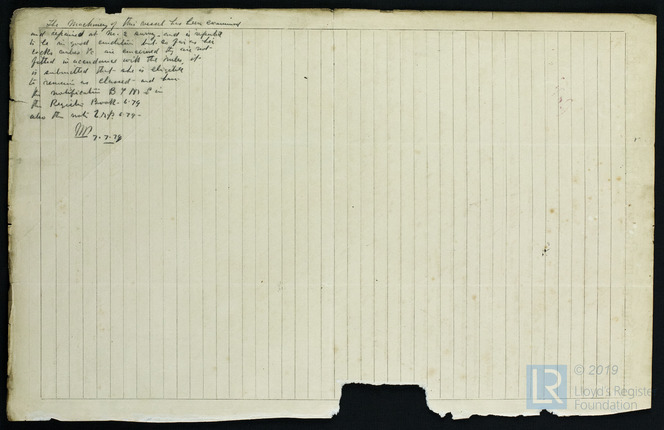 The Machinery of this vessel has been examined
and repaired at No. 2 survey, and is reported
to be in good condition but as far as her
cocks valves &c are concerned they are not
fitted in accordance with the Rules, it
is submitted that she is eligible
to remain as classed and have
the notification B & M S in
the Register Book 6.79
also the note 6.79
7.7.79
LR
© 2019
Lloyd's Register
Foundation